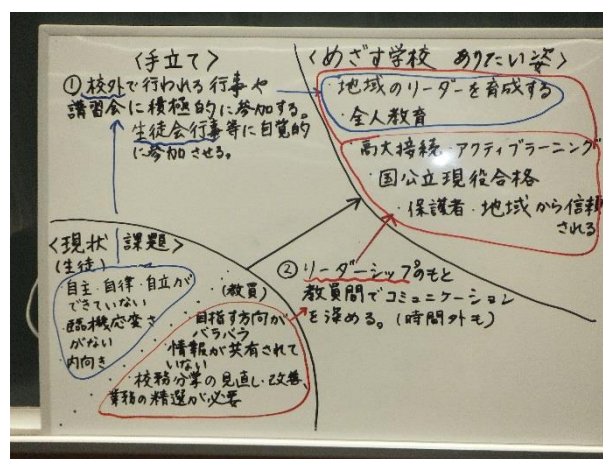 〈手立て〉
① 校外で行われる行事や
講習会に積極的に参加する。
生徒会行事等に自覚的
に参加させる。
〈めざす学校 ありたい姿〉
・地域のリーダーを育成する
・全人教育
・高大接続・アクティブラーニング
・国公立現役合格
・保護者・地域から信頼
される
〈現状 課題〉
(生徒)
自主・自律・自立が
できていない
臨機応変さ
がない
内向き
(教員)
目指す方向が
バラバラ
情報が共有されて
いない
校務分掌の見直し・改善、
業務の精選が必要
② リーダーシップのもと
教員間でコミュニケーション
を深める。(時間外も)